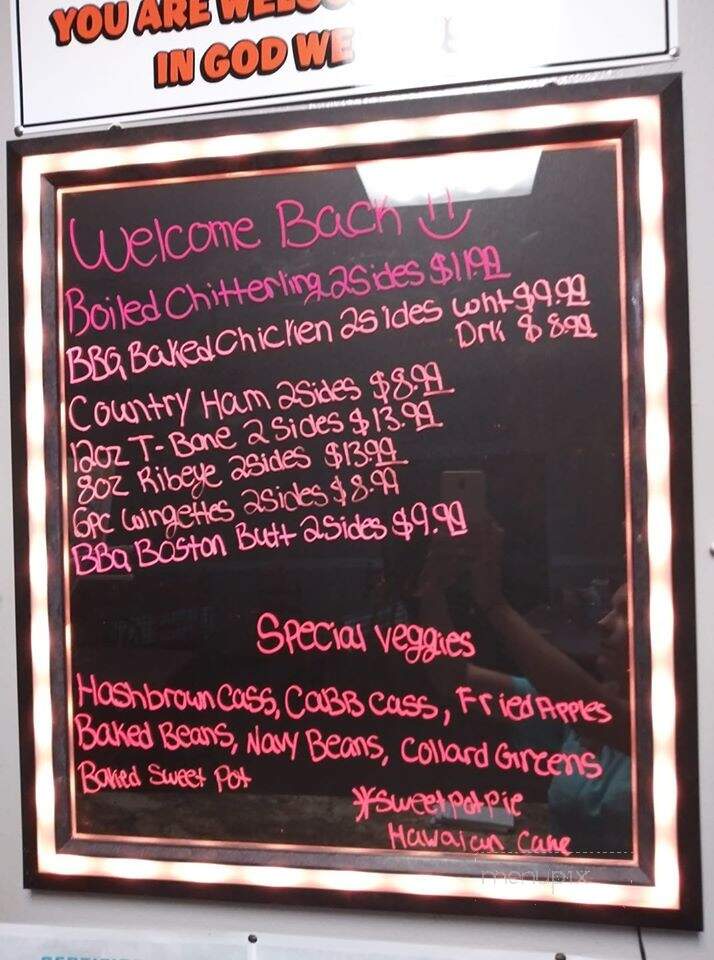 YOU ARE WELCO
IN GOD WE
Welcome Back
Boiled Chitterling 2Sides $11.99
BBQ Baked Chicken 2Sides wht $9.99
Drk $8.99
Country Ham 2Sides $8.99
12oz T-Bone 2 Sides $13.99
8oz Ribeye 2Sides $13.99
6pc Wingettes 2Sides $8.99
BBQ Boston Butt 2Sides $9.99
Special Veggies
Hashbrown Cass, CaBB Cass, Fried Apples
Baked Beans, Navy Beans, Collard Greens
Baked Sweet Pot
*Sweet pot pie
Hawaian Cake
menupix